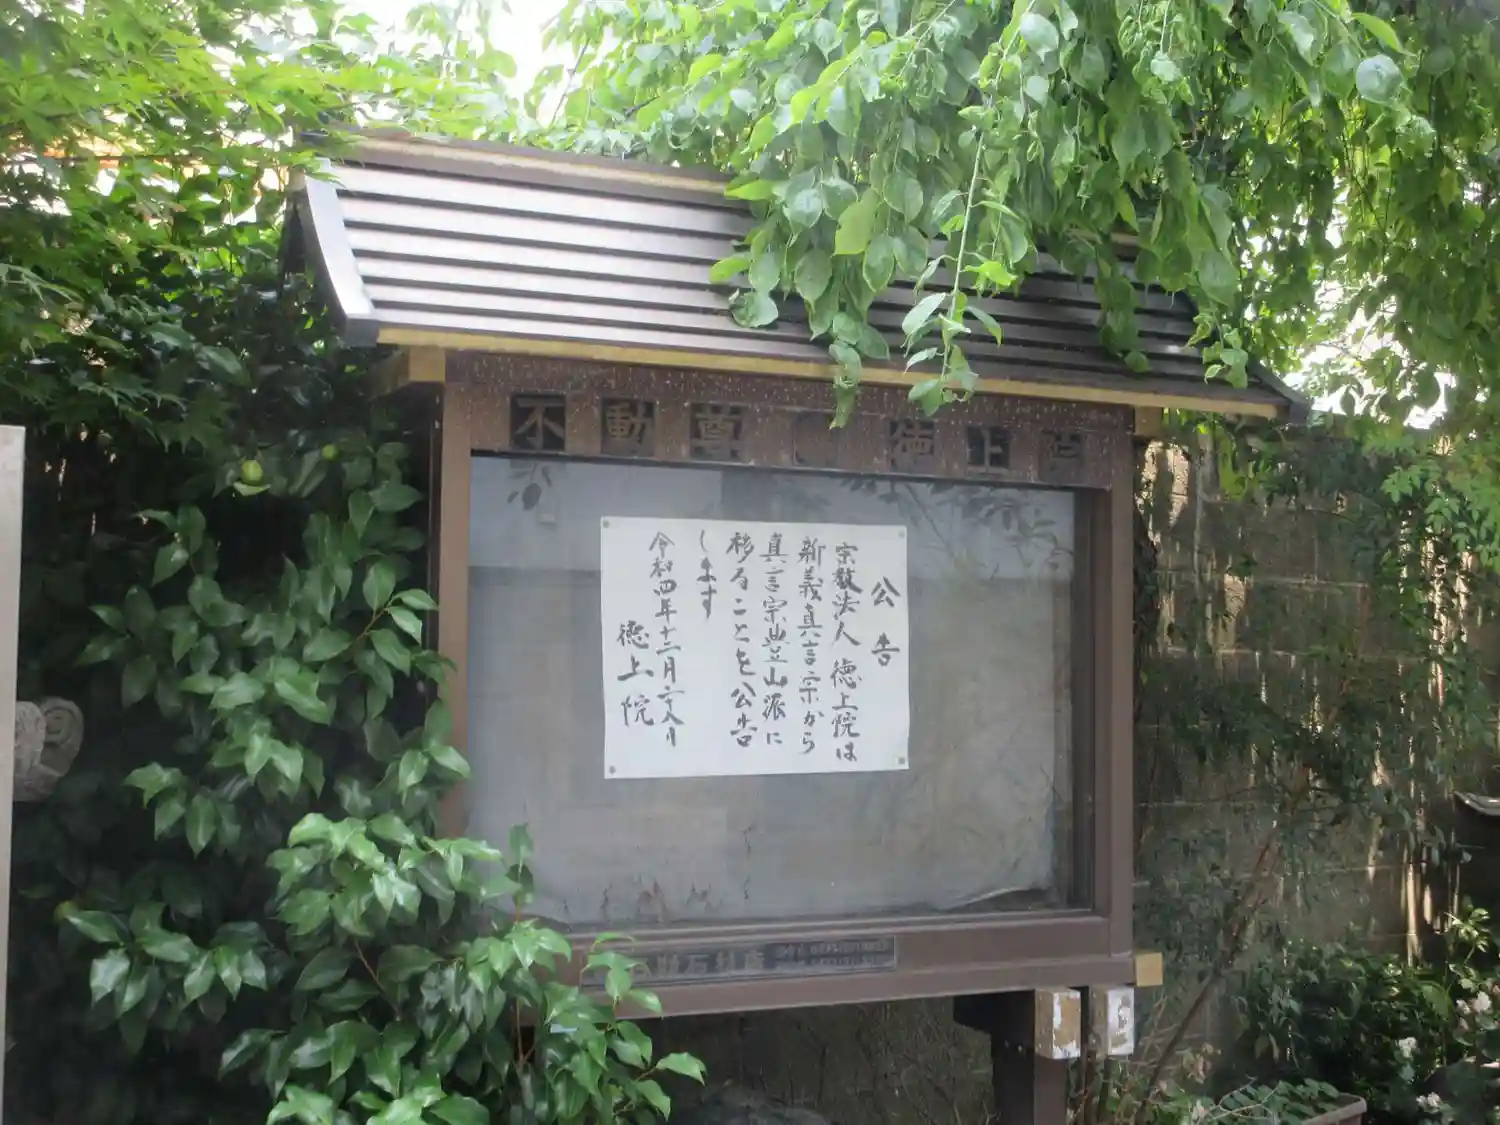 不動尊 徳上院
公告
宗教法人 徳上院は
新義真言宗から
真言宗豊山派に
移ることを公告
します
令和四年十二月二十八日
徳上院